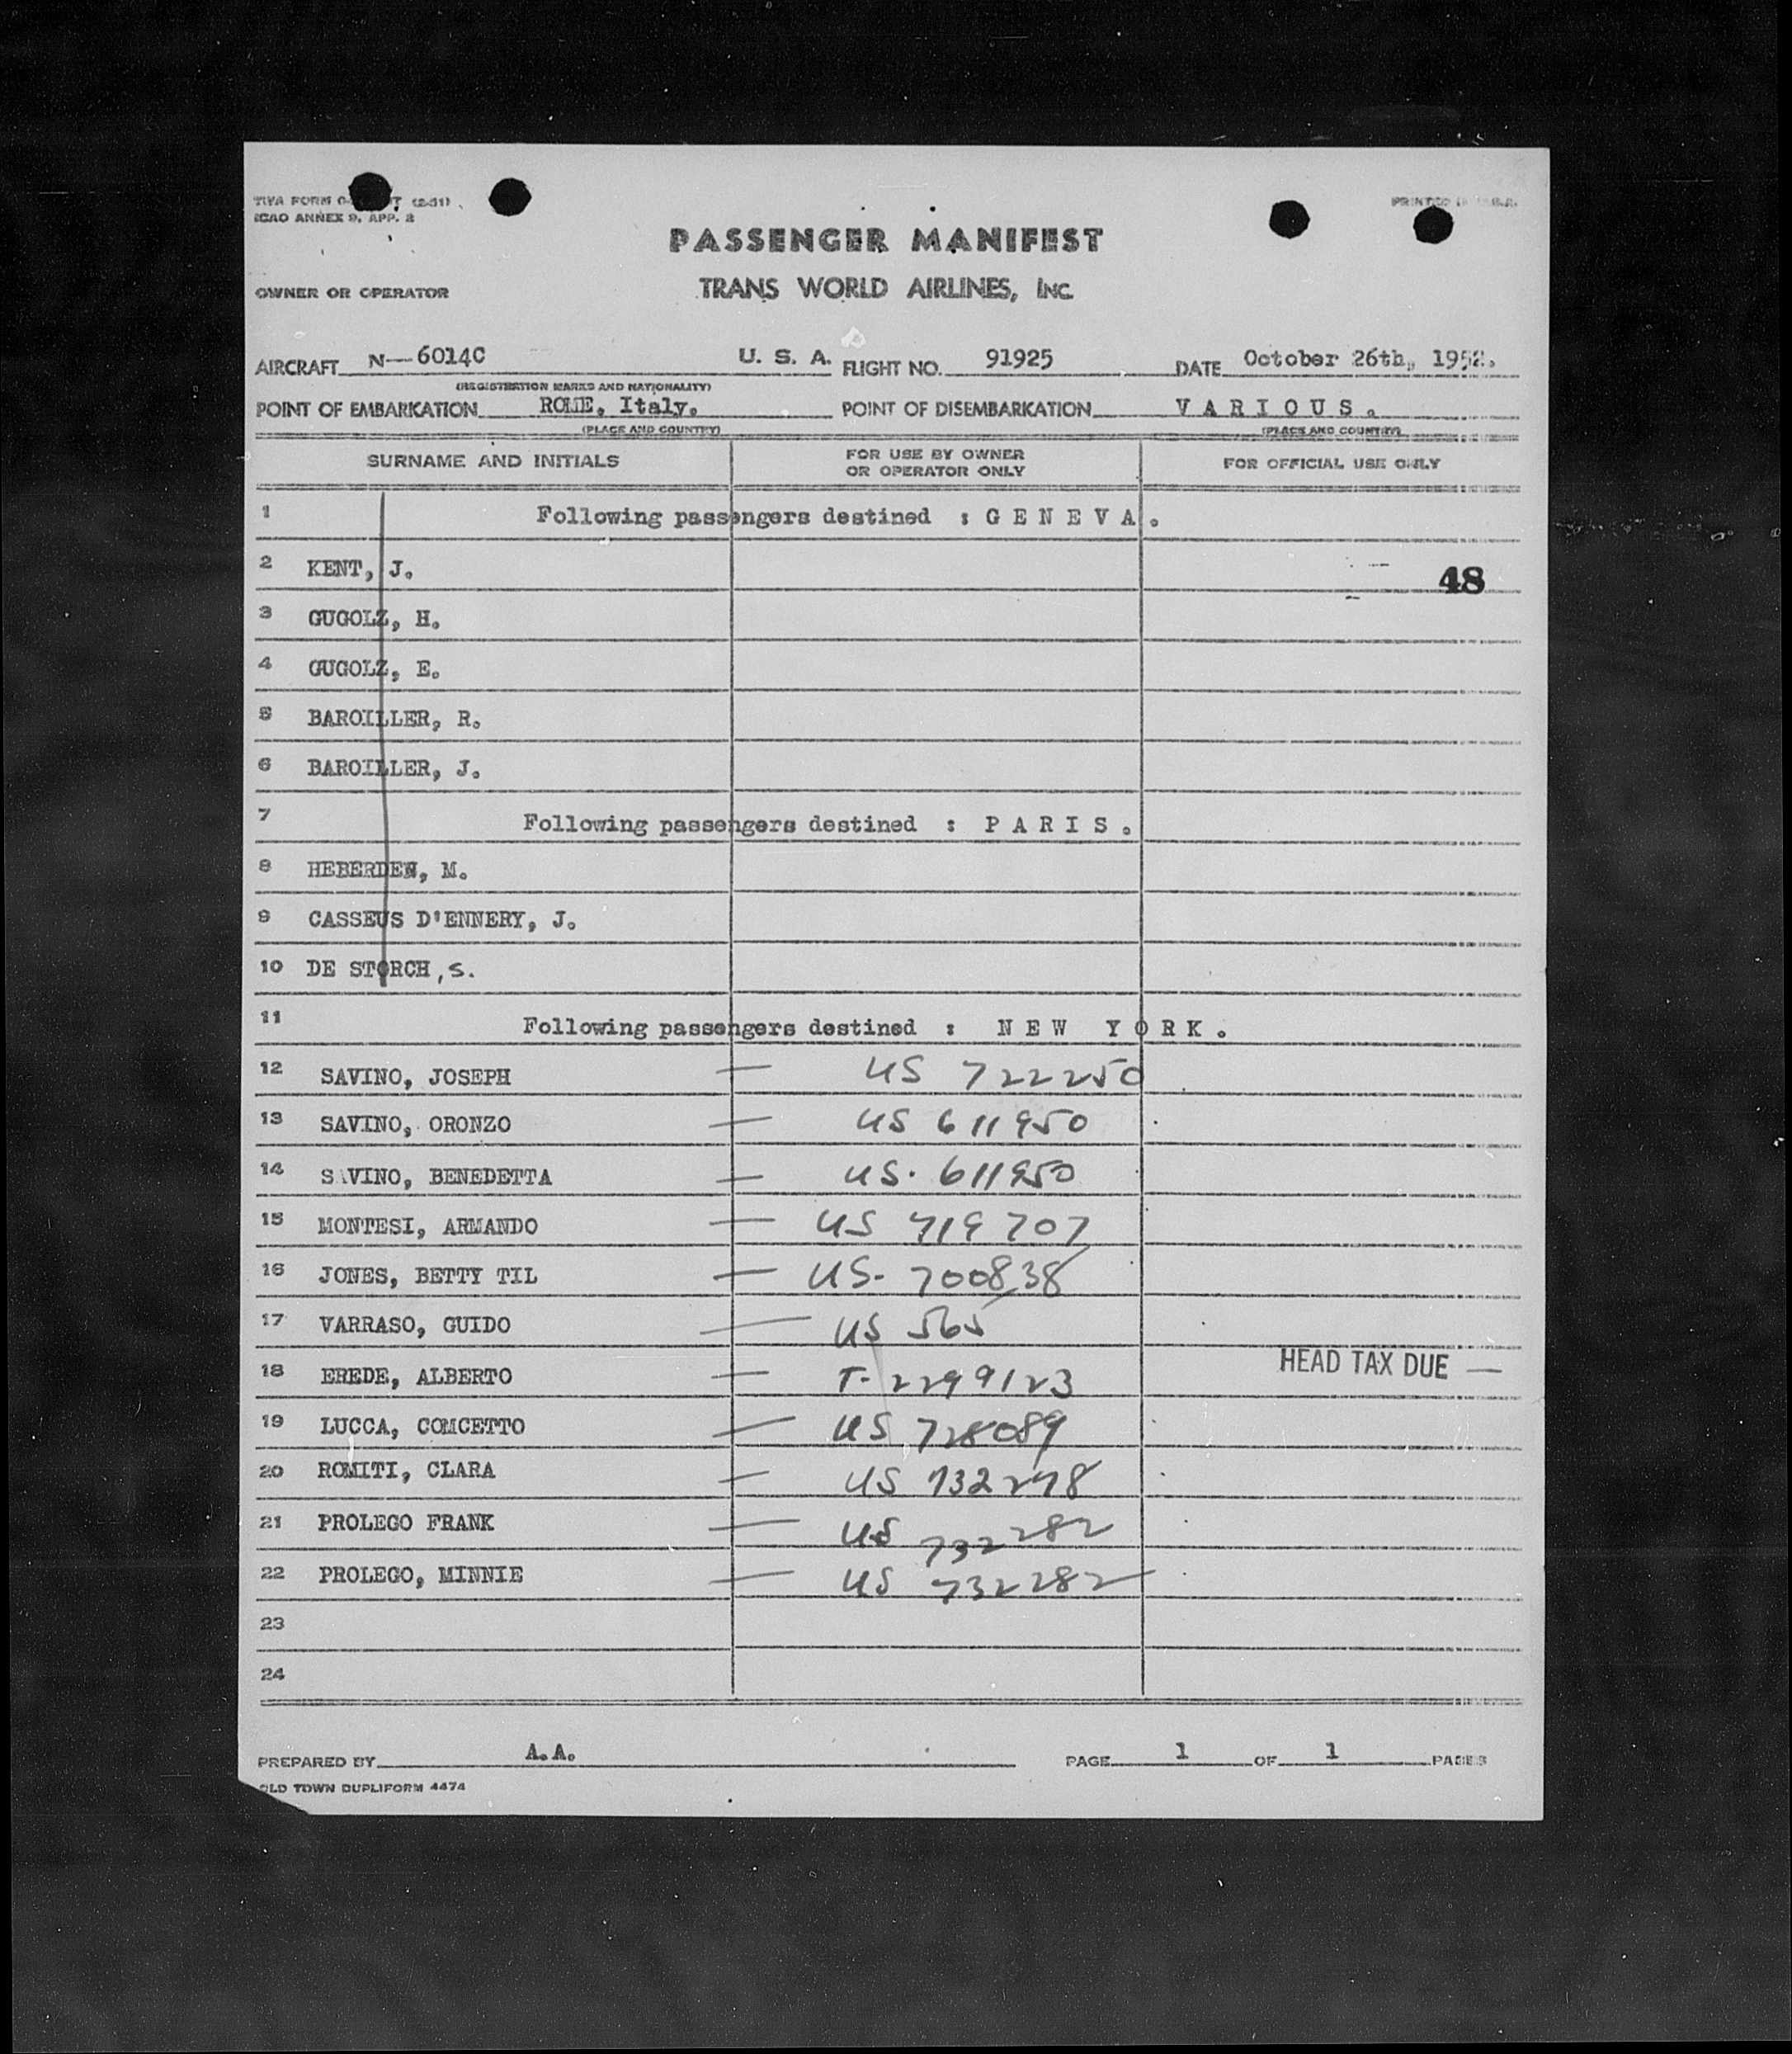 TWA FORM (2-51)
PRINTED IN U.S.A.
ICAO ANNEX 9, APP. 2
PASSENGER MANIFEST
OWNER OR OPERATOR TRANS WORLD AIRLINES, INC.
AIRCRAFT N—6014C U. S. A. FLIGHT NO. 91925 DATE October 26th, 1952.
(REGISTRATION MARKS AND NATIONALITY)
POINT OF EMBARKATION ROME, Italy. POINT OF DISEMBARKATION V A R I O U S .
(PLACE AND COUNTRY) (PLACE AND COUNTRY)
SURNAME AND INITIALS FOR USE BY OWNER OR OPERATOR ONLY FOR OFFICIAL USE ONLY
1 Following passengers destined : G E N E V A .
2 KENT, J. 48
3 GUGOLZ, H.
4 GUGOLZ, E.
5 BAROILLER, R.
6 BAROILLER, J.
7 Following passengers destined : P A R I S .
8 HEBERDEN, M.
9 CASSEUS D'ENNERY, J.
10 DE STORCH, S.
11 Following passengers destined : N E W Y O R K .
12 SAVINO, JOSEPH — US 722250
13 SAVINO, ORONZO — US 611950
14 SAVINO, BENEDETTA — US. 611950
15 MONTESI, ARMANDO — US 719707
16 JONES, BETTY TIL — US- 700838
17 VARRASO, GUIDO — US 565
18 EREDE, ALBERTO — T-2299123 HEAD TAX DUE —
19 LUCCA, COMCETTO — US 728089
20 ROMITI, CLARA — US 732278
21 PROLEGO FRANK — US 732282
22 PROLEGO, MINNIE — US 732282
23
24
PREPARED BY A.A. PAGE 1 OF 1 PAGES
OLD TOWN DUPLIFORM 4474